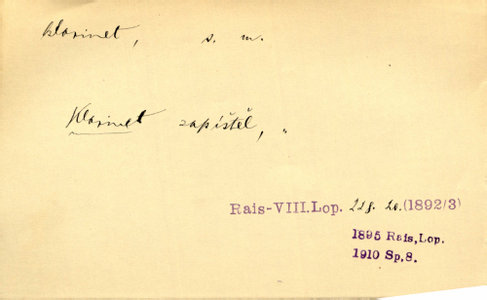 klarinet, s. m.
Klarinet zapištěl, „
Rais-VIII.Lop. 228. 20. (1892/3)
1895 Rais,Lop.
1910 Sp.8.